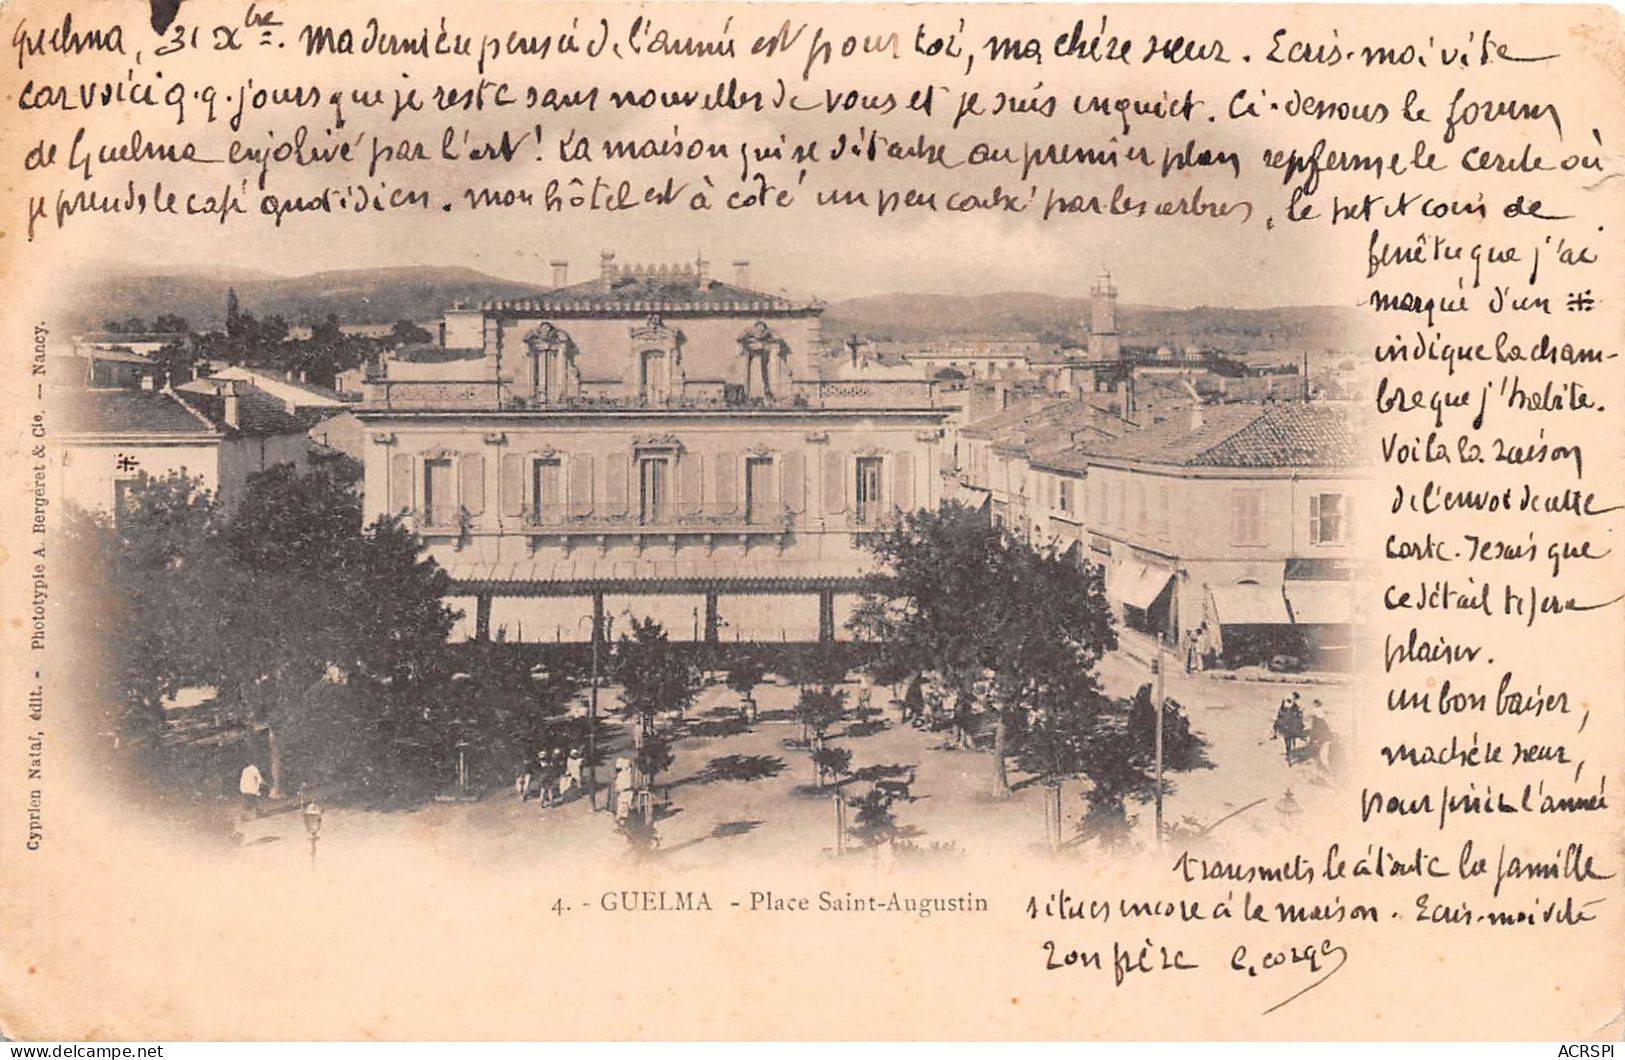 Guelma, 31 Xbre. Ma dernière pensée de l'année est pour toi, ma chère sœur. Ecris-moi vite
car voici q.q. jours que je reste sans nouvelles de vous et je suis inquiet. Ci-dessous le forum
de Guelma enjolivé par l'art! La maison qui se détache au premier plan renferme le cercle où
je prends le café quotidien. Mon hôtel est à côté un peu caché par les arbres, le petit coin de
fenêtre que j'ai
marqué d'un ⁜
indique la cham-
bre que j'habite.
Voila la raison
de l'envoi de cette
carte. Je sais que
ce détail te fera
plaisir.
Un bon baiser,
ma chère sœur,
pour finir l'année
transmets le à toute la famille
si tu es encore à la maison. Ecris-moi vite
Ton frère Georges
⁜
4. - GUELMA - Place Saint-Augustin
Cyprien Nataf, édit. - Phototypie A. Bergeret & Cie. — Nancy.
ACRSPI